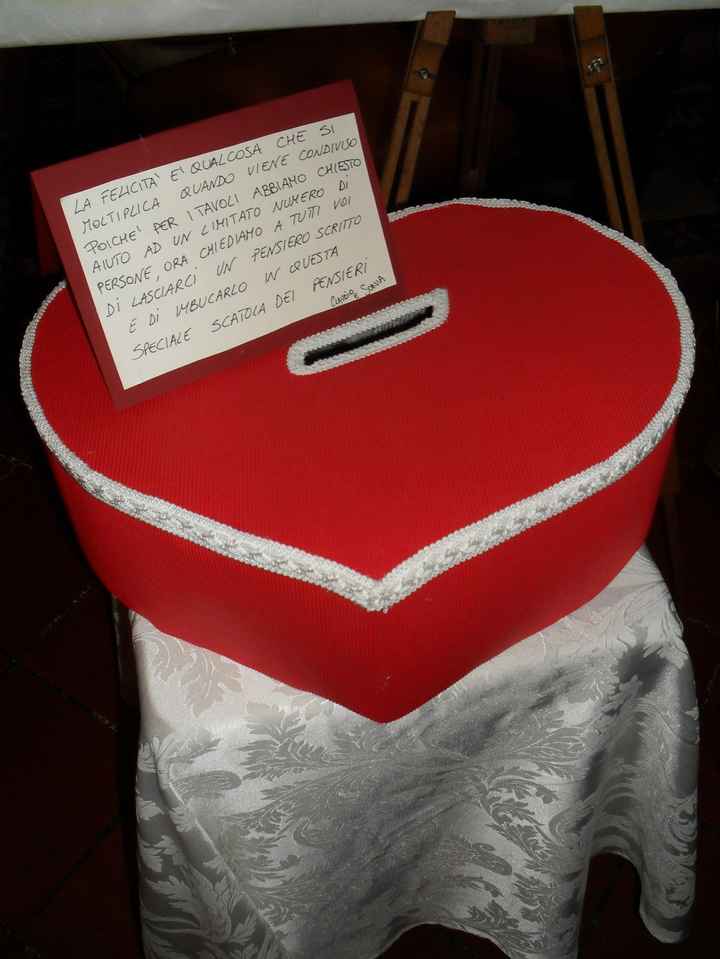 LA FELICITA' E' QUALCOSA CHE SI
MOLTIPLICA QUANDO VIENE CONDIVISO
POICHE' PER I TAVOLI ABBIAMO CHIESTO
AIUTO AD UN LIMITATO NUMERO DI
PERSONE, ORA CHIEDIAMO A TUTTI VOI
DI LASCIARCI UN PENSIERO SCRITTO
E DI IMBUCARLO IN QUESTA
SPECIALE SCATOLA DEI PENSIERI